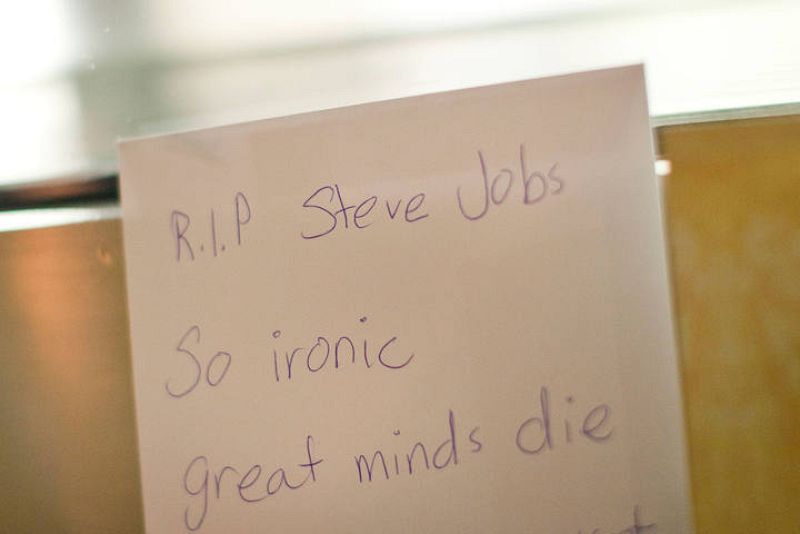 R.I.P Steve Jobs
So ironic
great minds die